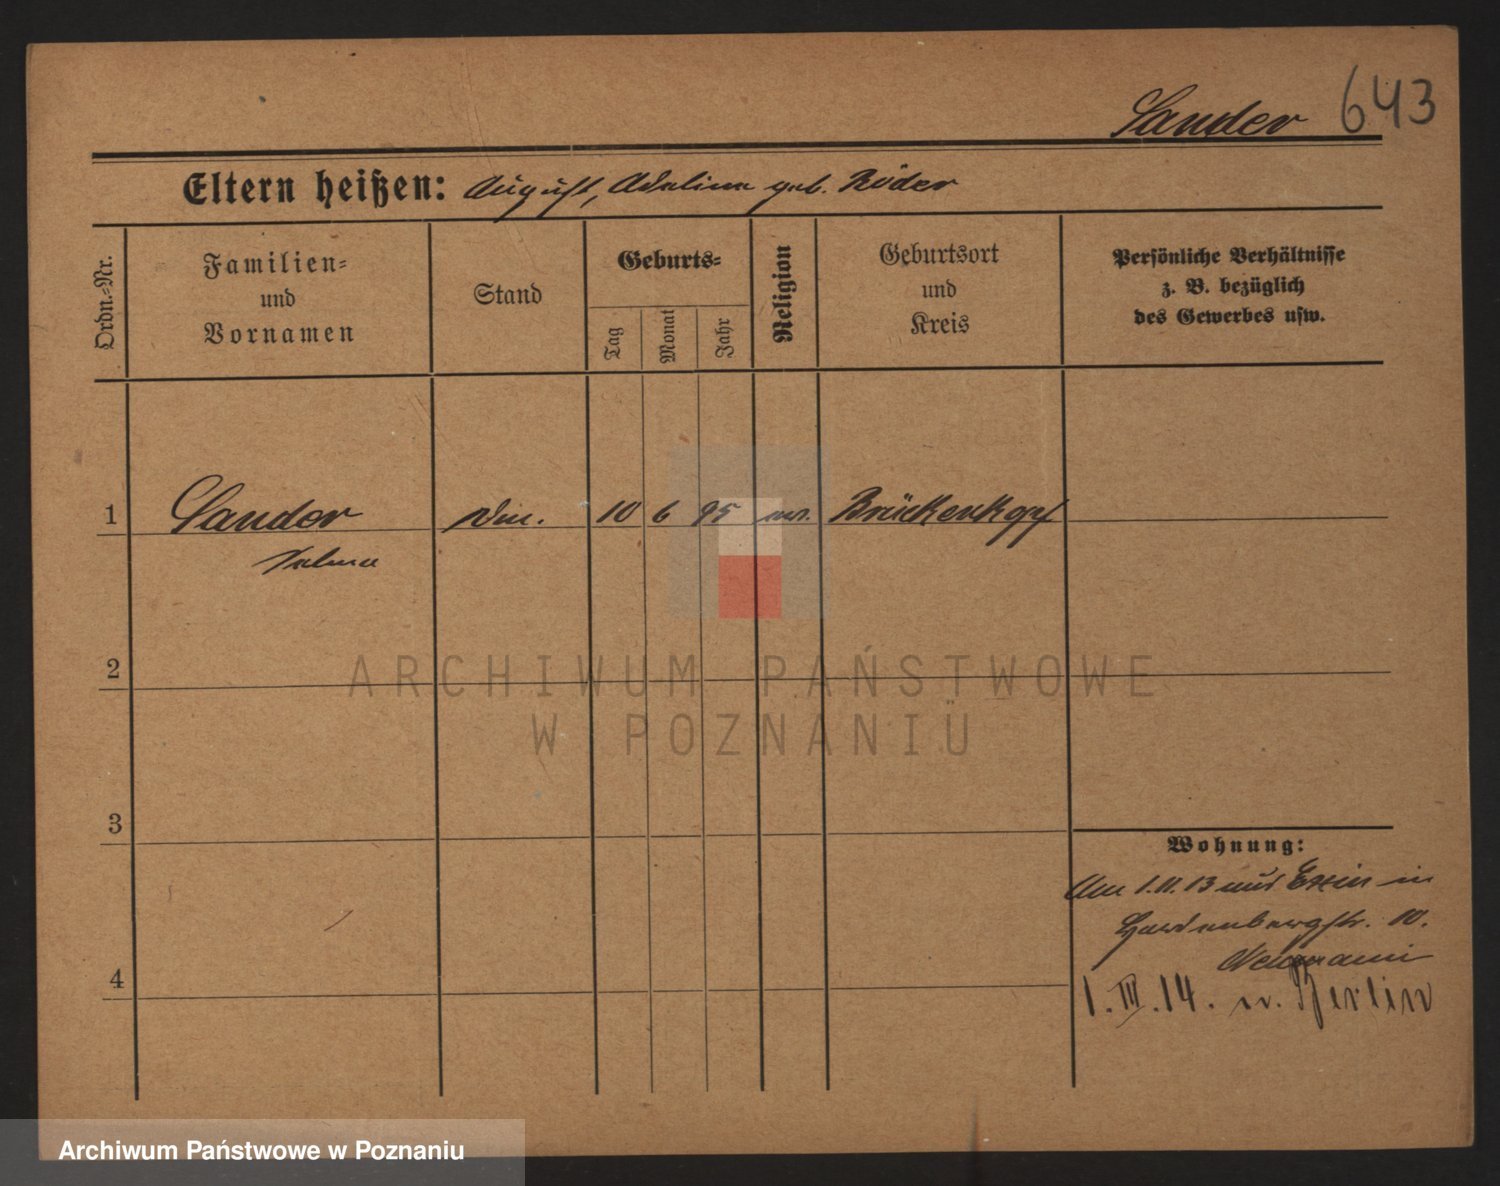 Sander 643
Eltern heißen: August, Adeline geb. Röder
Ordn.-Nr.
Familien-
und
Vornamen
Stand
Geburts-
Tag
Monat
Jahr
Religion
Geburtsort
und
Kreis
Persönliche Verhältnisse
z. B. bezüglich
des Gewerbes usw.
1 Sander 10 6 95 Brückenkopf
2
ARCHIWUM PAŃSTWOWE
W POZNANIU
3
Wohnung:
Am 1.11.13 aus Exin in
Hardenbergstr. 10.
Neumann
4
1. III. 14. n. Berlin
Archiwum Państwowe w Poznaniu